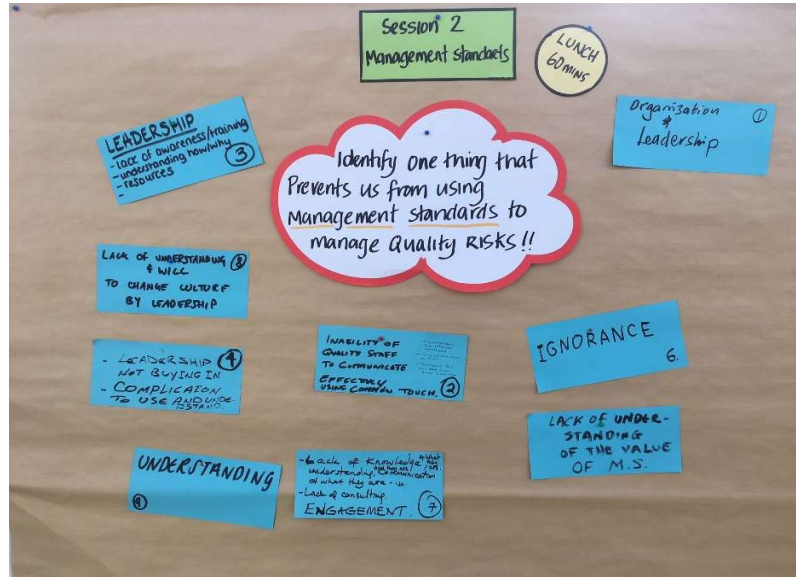 Session 2
Management Standaels
LUNCH
60 MINS
Organization
&
Leadership
1
LEADERSHIP
- lack of awareness/training
- understanding how/why
- resources
3
Identify one thing that
Prevents us from using
Management standards to
manage Quality Risks!!
LACK OF UNDERSTANDING
& WILL
TO CHANGE CULTURE
BY LEADERSHIP
- LEADERSHIP
NOT BUYING IN
- COMPLICATION
TO USE AND UNDE-
STAND
INABILITY OF
QUALITY STAFF
TO COMMUNICATE
EFFECTIVELY
USING COMMON TOUCH.
2
IGNORANCE
6.
LACK OF UNDER-
STANDING
OF THE VALUE
OF M.S.
UNDERSTANDING
- Lack of knowledge
understanding, communication
of what they are
- Lack of consulting.
ENGAGEMENT.
7